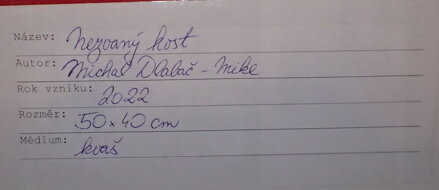 Název: Nezvaný host
Autor: Michal Dlabač - Mike
Rok vzniku: 2022
Rozměr: 50 x 40 cm
Médium: kvaš